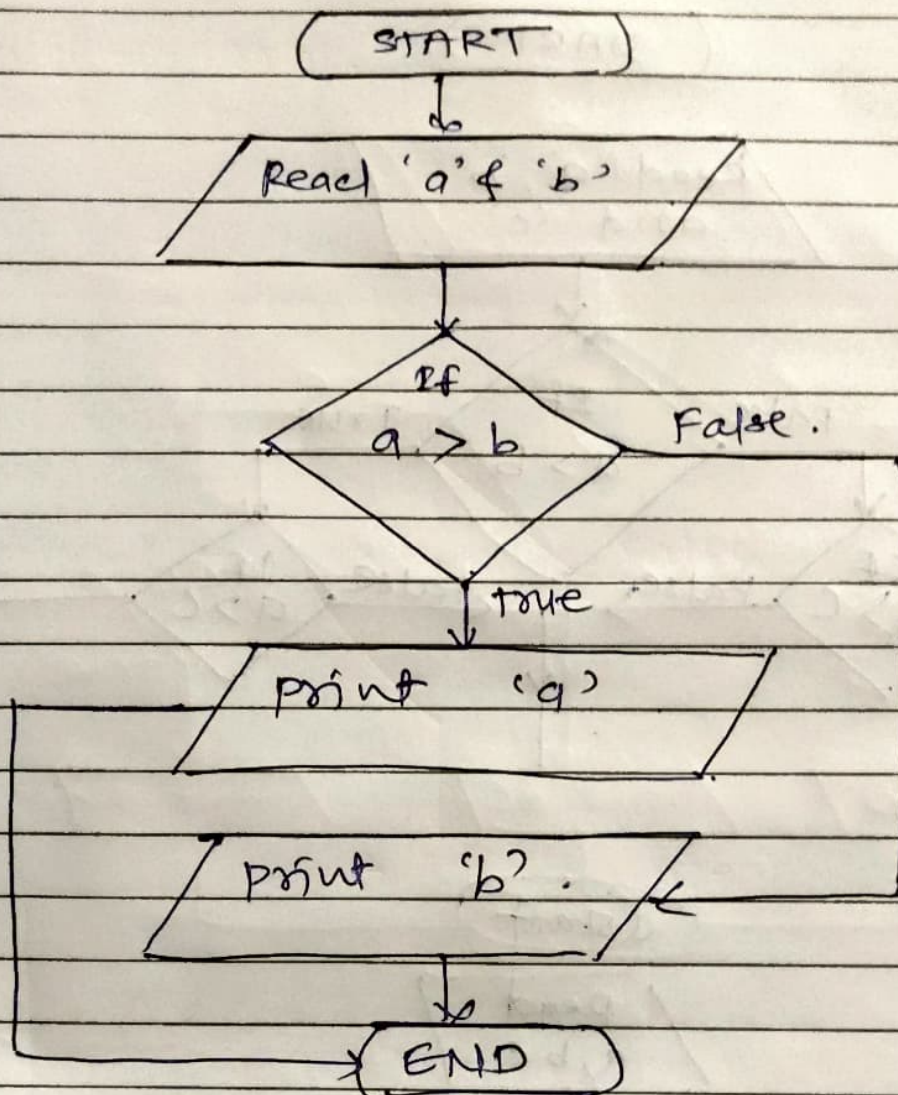 START
Read 'a' & 'b'
If
a > b
False.
true
print 'a'
print 'b'.
END